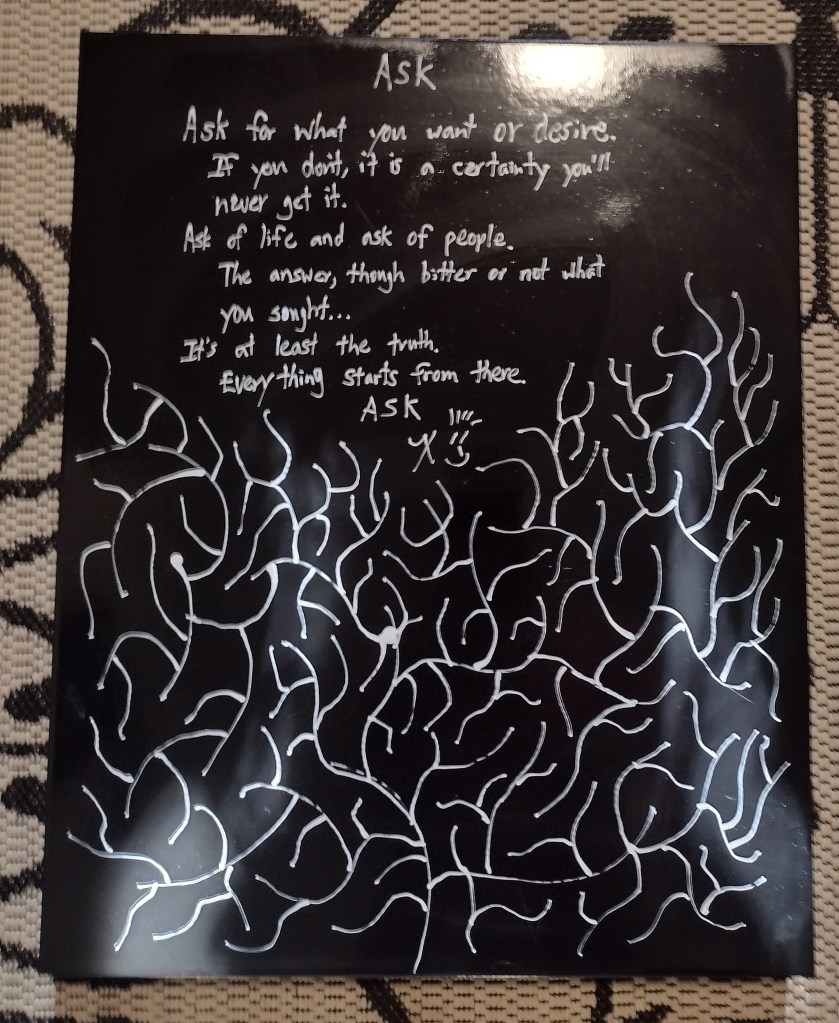 ASK
Ask for what you want or desire.
If you don't, it is a certainty you'll
never get it.
Ask of life and ask of people.
The answer, though bitter or not what
you sought...
It's at least the truth.
Everything starts from there.
ASK